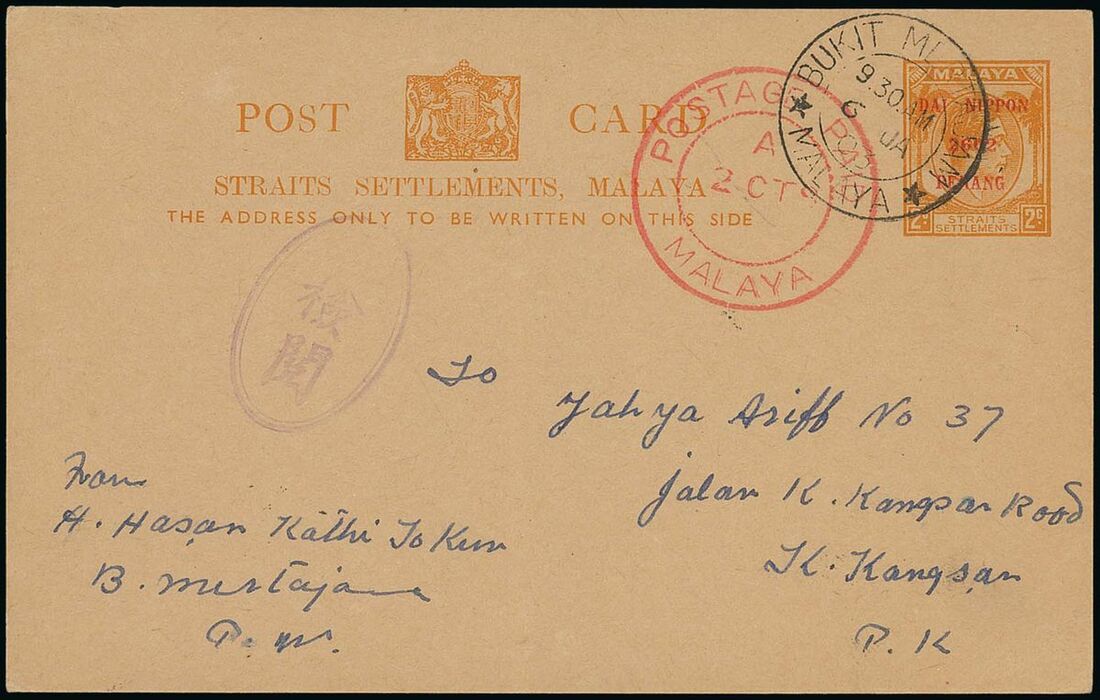 POST CARD
STRAITS SETTLEMENTS, MALAYA
THE ADDRESS ONLY TO BE WRITTEN ON THIS SIDE
POSTAGE PAID
A
2 CTS
MALAYA
BUKIT
9.30 AM
6 JA
MALAYA
MALAYA
DAI NIPPON
2602
PENANG
2c 2c
STRAITS
SETTLEMENTS
検
閲
To
Yahya Ariff No 37
Jalan K. Kangsar Road
K. Kangsar
P. K
From
H. Hasan Kathi To Kun
B. Mertajam
P. W.